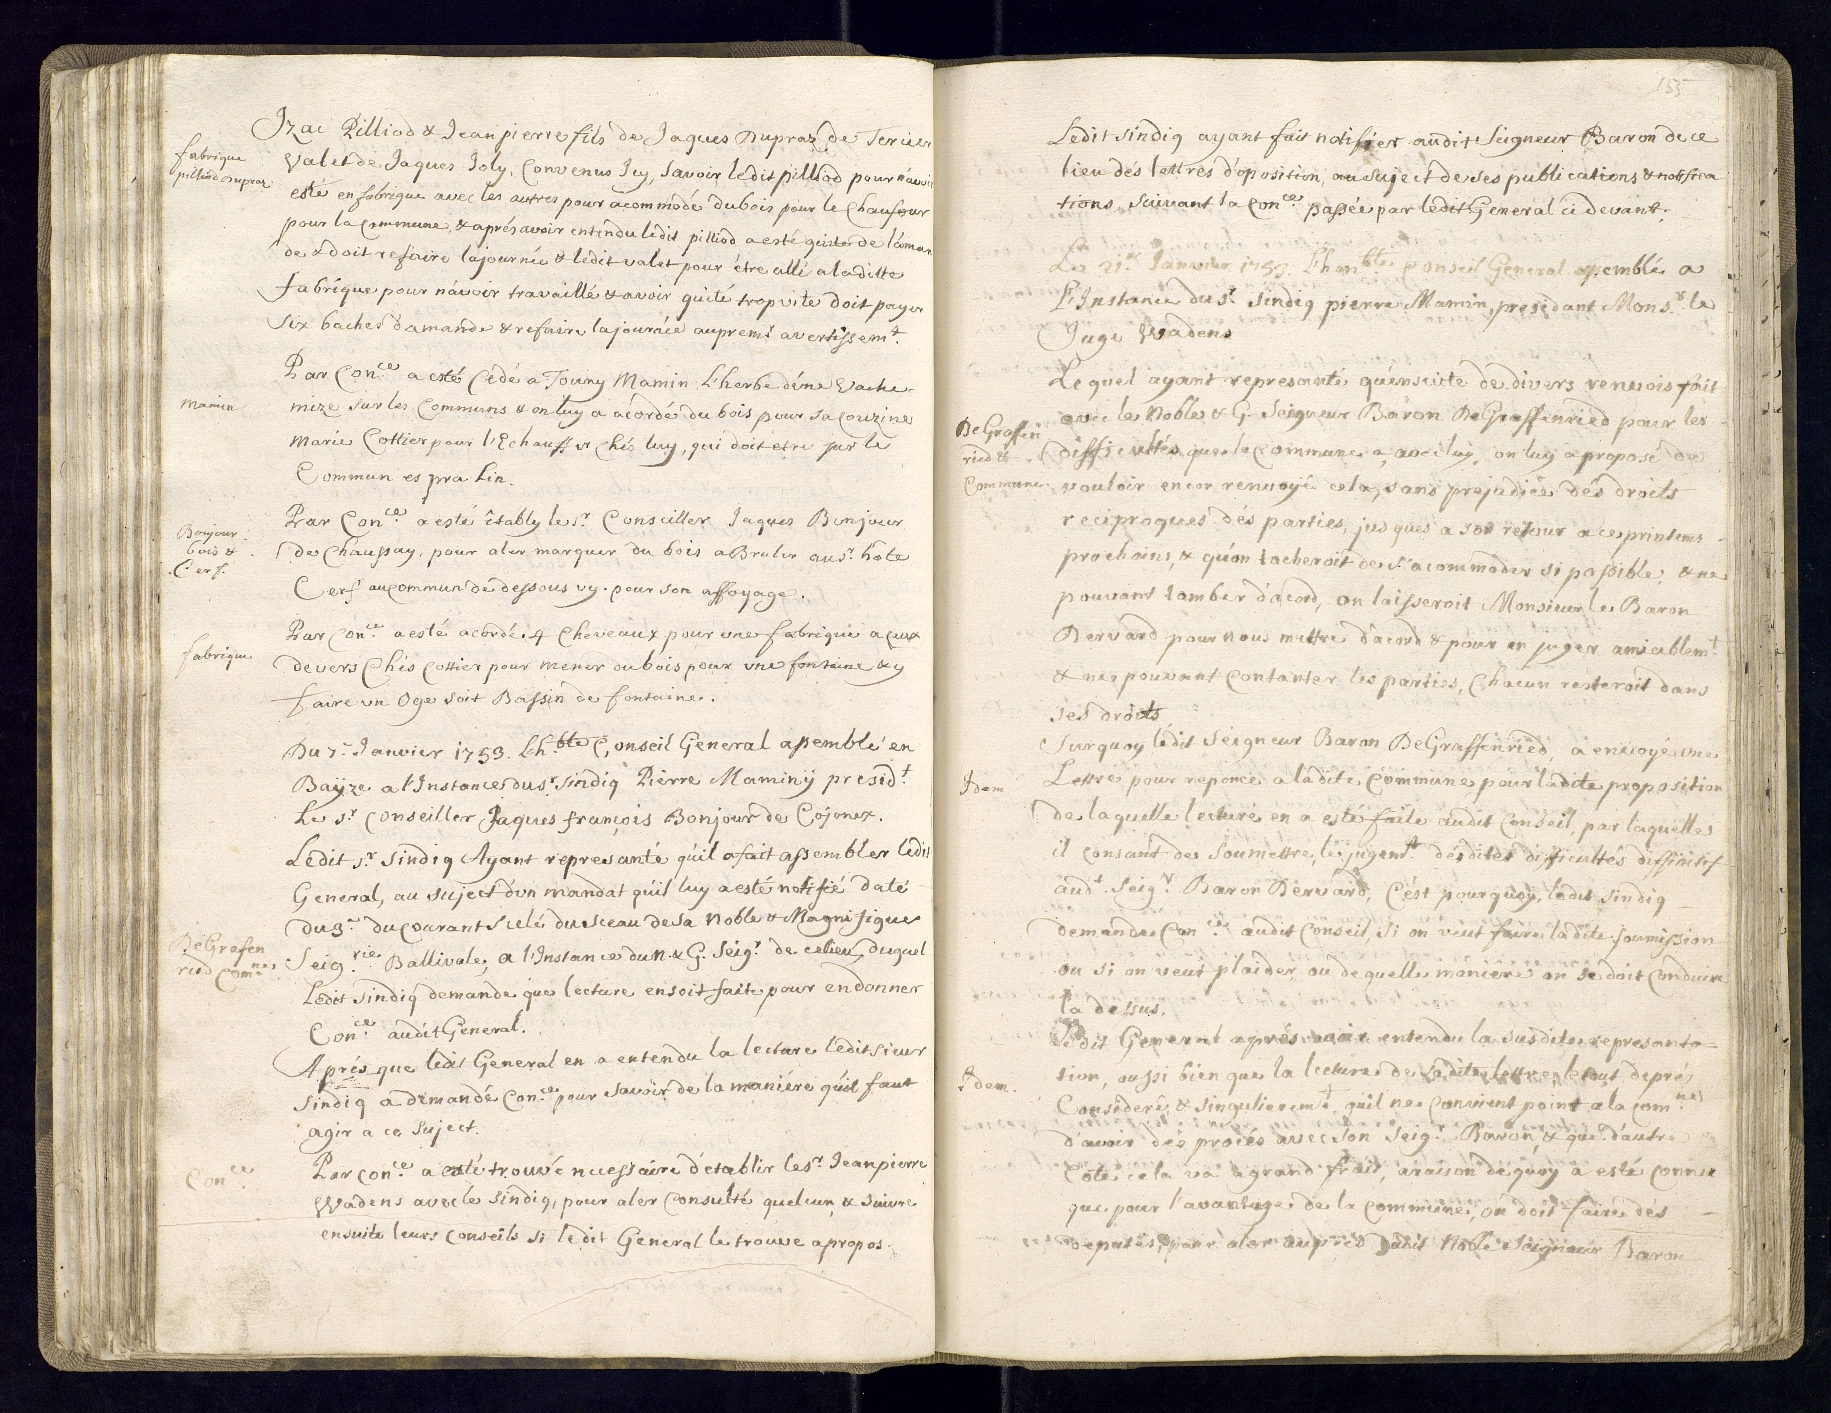 Izac Pilliod & Jeanpierre fils de Jaques Dupraz de Serier
fabrique
pilliod dupraz
Valet de Jaques Joly, Convenus Icy, Savoir ledit pilliod pour n'avoir
esté en fabrique avec les autres pour acommodé du bois pour le Chaufour
pour la Commune, & aprés avoir entendu ledit pilliod a esté quister de l'aman
de & doit refaire la journée & ledit valet pour être allé a laditte
fabrique pour n'avoir travaillé & avoir quité trop vite doit payer
Six baches d'amande & refaire la journée au prem.r avertissem.t
Par Con.ce a esté Cedé a Touny Mamin L'herbe d'une Vache
Mamin
mize sur les Communs & on luy a acordé du bois pour sa couzine
Marie Cottier pour l'Echauffer Ché luy, qui doit etre sur le
Commun es pra Lin.
Par Con.ce a esté êtably le s.r Conseiller Jaques Bonjour
Bonjour
bois &
Cerf.
de Chaussay, pour aler marquer du bois a Bruler au s.r hôte
Cerf au commun de dessous vy. pour son affoyage.
Par Con.ce a esté acordé. 4 Cheveaux pour une fabrique a ceux
fabrique
devers Chés Cottier pour mener du bois pour une fontaine & y
faire un Oge soit Bassin de fontaine.
Du 7.e Janvier 1753. Lh.ble Conseil General assemblé en
Bayze a l'Instance du s.r sindiq Pierre Maminÿ presid.t
Le s.r Conseiller Jaques françois Bonjour de Cojonex.
Ledit s.r sindiq Ayant represanté qu'il a fait assembler ledit
General, au suject d'un mandat qu'il luy a esté notifié daté
du 3.e du courant Scelé du sceau de sa Noble & Magnifique
DeGrafen
ried Com.ne
Seig.rie Ballivale, a l'Instance du N. & G. Seig.r de ce lieu, duquel
Ledit sindiq demande que lecture en soit faite pour en donner
Con.ce audit General.
Aprés que ledit General en a entendu la lecture ledit sieur
Sindiq a demandé Con.ce pour savoir de la maniére qu'il faut
agir a ce Suject.
Par con.ce a esté trouvé nécessaire d'établir le s.r Jeanpierre
Con.ce
Wadens avec le sindiq, pour aler Consulté quelcun, & suivre
ensuite leurs conseils si ledit General le trouve apropos.
155
Ledit sindiq ayant fait notifier audit Seigneur Baron de ce
lieu dés lettres d'oposition, au suject de ses publications & notifica
tions, suivant la Con.ce passée par ledit General ci devant.
Le 21.e Janvier 1753. L'hon.ble Conseil General assemblé a
L'Instance du s.r Sindiq pierre Mamin, presidant Mons.r le
Juge Wadens
Lequel ayant represanté qu'ensuitte de divers renvois fait
avec le Noble & G. Seigneur Baron DeGraffenried pour les
DeGraffen
ried &
Commune.
difficultés que la Commune a avec luy, on luy a proposé de
vouloir encor renvoyé cela, sans prejudice dés droits
reciproques dés parties, jusques a son retour a ce printems
prochains, & qu'on tacheroit de s'acommoder si possible, & ne
pouvant tomber d'acord, on laisseroit Monsieur le Baron
Dervard pour nous mettre d'acord & pour en juger amiablem.t
& nes pouvant Contanter les parties, Chacun resteroit dans
ses droits
Surquoy ledit Seigneur Baron DeGraffenried, a envoyé une
Idem
Lettre pour reponce a ladite Commune pour ladite proposition
de laquelle lecture en a esté faite audit Conseil, par laquelle
il consant de Soumettre, le jugem.t désdites difficultés diffinitif
aud.t Seig.r Baron Dervard, C'est pourquoy, ledit Sindiq
demande Con.ce audit Conseil, si on veut faire ladite soumission
ou si on veut plaider, ou de quelle maniére on se doit Conduire
la dessus.
Ledit General aprés avoir entendu la susdite represanta
Idem.
tion, aussi bien que la lecture de ladite lettre, le tout deprés
Consideré, & singulierem.t qu'il ne Convient point a la Com.ne
d'avoir dés procés avec son Seig.r Baron & que d'autre
Côté cela va a grand frais, a raison de quoy a esté Connu
que pour l'avantage de la Commune, on doit faire dés
deputés, pour aler aupres dudit Noble Seigneur Baron